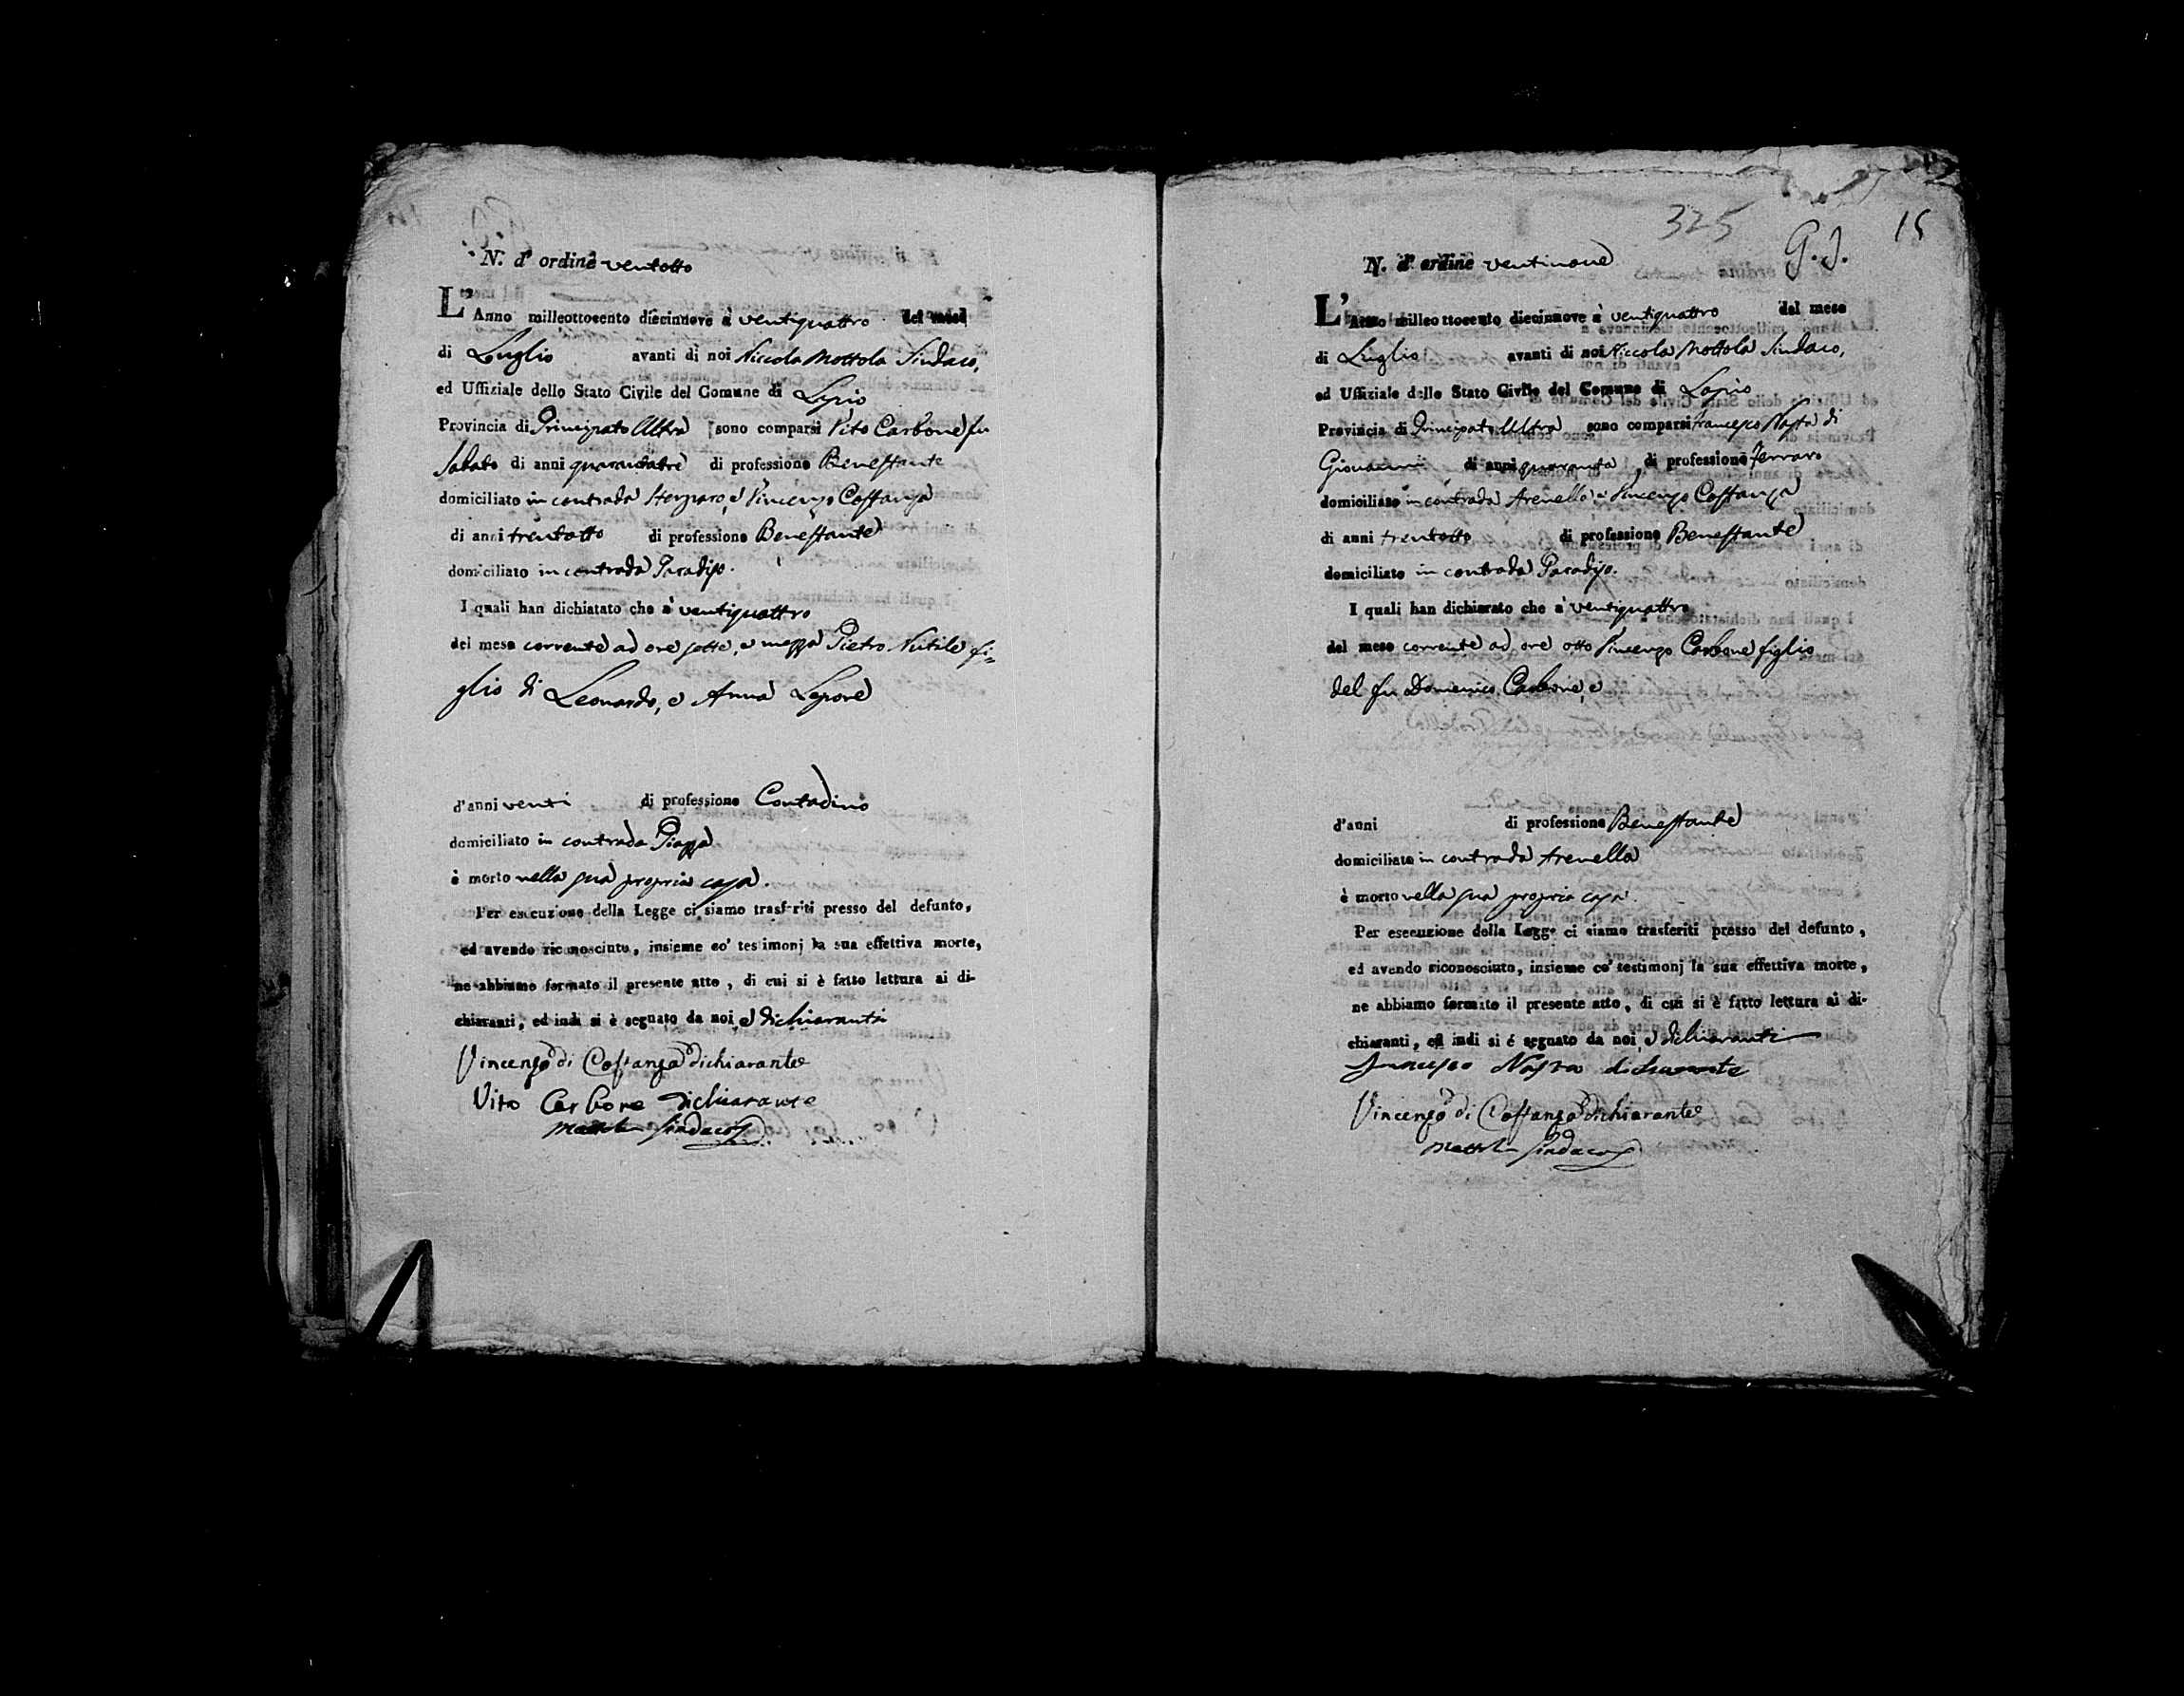 N. d'ordine ventotto
L'Anno milleottocento diecinnove à ventiquattro del mese
di Luglio avanti di noi Niccola Mottola Sindaco,
ed Uffiziale dello Stato Civile del Comune di Lapio
Provincia di Principato Ultra sono comparsi Vito Carbone fu
Sabato di anni quarantatre di professione Benestante
domiciliato in contrada e Vincenzo Costanza
di anni trentotto di professione Benestante
domiciliato in contrada Paradiso.
I quali han dichiatato che à ventiquattro
del mese corrente ad ore sette, e mezza Pietro Nutile fi=
glio di Leonardo, e Anna Lepore
d'anni venti di professione Contadino
domiciliato in contrada Piazza
è morto nella sua propria casa.
Per esecuzione della Legge ci siamo trasferiti presso del defunto,
ed avendo riconosciuto, insieme co' testimonj la sua effettiva morte,
ne abbiamo formato il presente atto, di cui si è fatto lettura ai di-
chiaranti, ed indi si è segnato da noi, e dichiaranti
Vincenzo di Costanza dichiarante
Vito Carbone dichiarante
Mottola Sindaco
325 G. J. 15
N. d'ordine ventinove
L'Anno milleottocento diecinnove à ventiquattro del mese
di Luglio avanti di noi Niccola Mottola Sindaco,
ed Uffiziale dello Stato Civile del Comune di Lapio
Provincia di Principato Ultra sono comparsi Francesco Nasta di
Giovanni di anni quaranta di professione Ferraro
domiciliato in contrada Arenella e Vincenzo Costanza
di anni trentotto di professione Benestante
domiciliato in contrada Paradiso.
I quali han dichiarato che à ventiquattro
del mese corrente ad ore otto Vincenzo Carbone figlio
del fu Domenico Carbone, e
d'anni di professione Benestante
domiciliato in contrada Arenella
è morto nella sua propria casa.
Per esecuzione della Legge ci siamo trasferiti presso del defunto,
ed avendo riconosciuto, insieme co' testimonj la sua effettiva morte,
ne abbiamo formato il presente atto, di cui si è fatto lettura ai di-
chiaranti, ed indi si é segnato da noi, e dichiaranti
Francesco Nasta dichiarante
Vincenzo di Costanza dichiarante
Mottola Sindaco